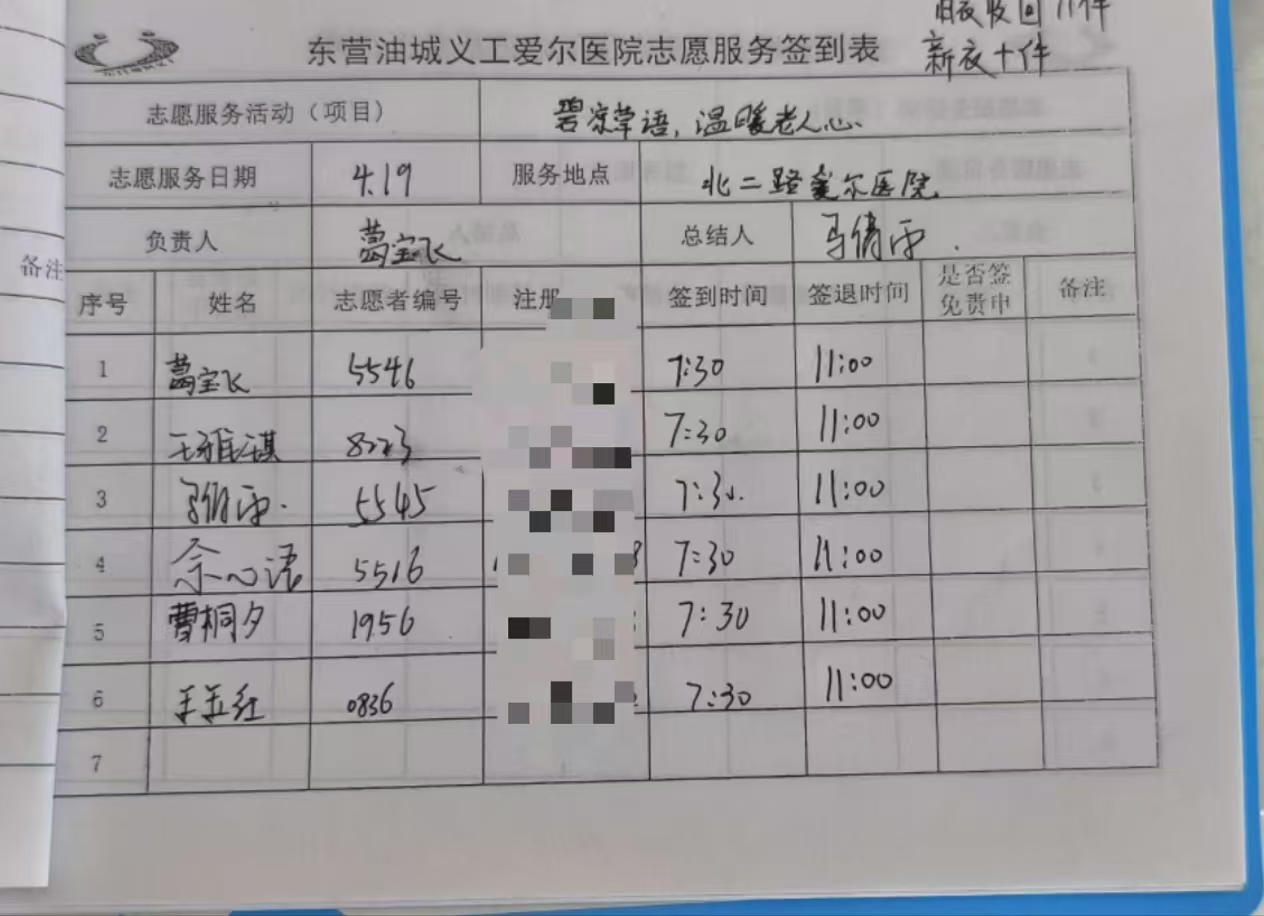 旧衣收回11件
东营油城义工爱尔医院志愿服务签到表 新衣十件
志愿服务活动（项目） 碧凉草语，温暖老人心.
志愿服务日期 4.19 服务地点 北二路爱尔医院.
负责人 葛宝飞 总结人 马倩雨.
备注
序号 姓名 志愿者编号 注册 签到时间 签退时间 是否签免责申 备注
1 葛宝飞 5546 7:30 11:00
2 王雅琪 8223 7:30 11:00
3 马倩雨. 5545 7:30. 11:00
4 佘心语 5516 7:30 11:00
5 曹桐夕 1956 7:30 11:00
6 0836 7:30 11:00
7